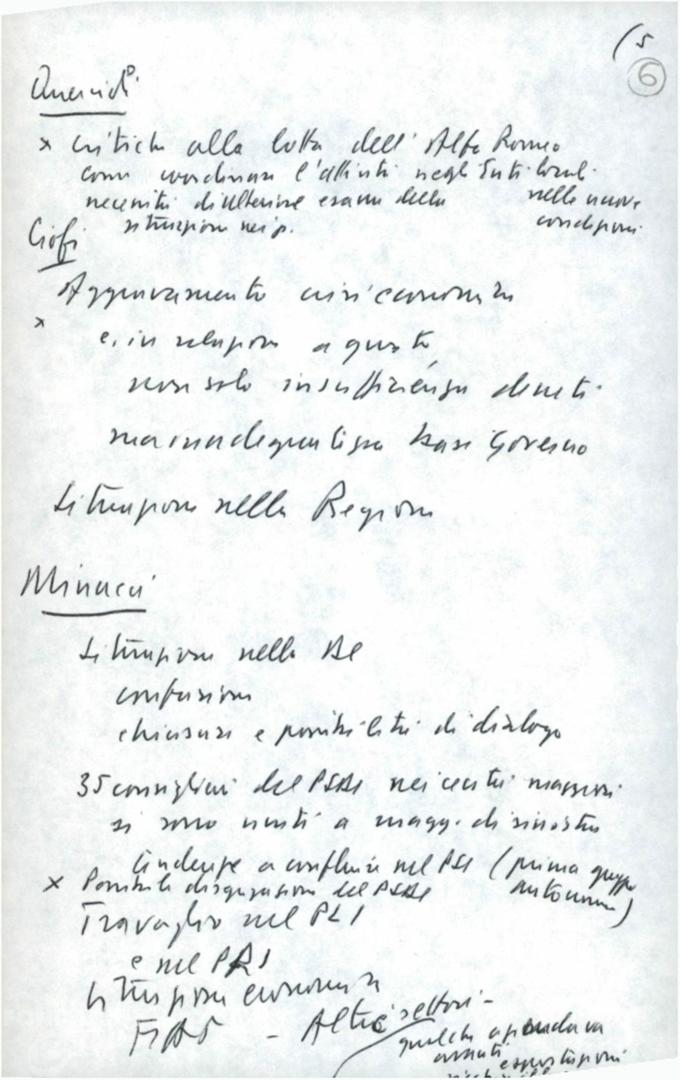 (5
6
x critiche alla lotta dell'Alfa Romeo
come coordinare l'attività negli Enti locali
necessità di ulteriore esame della nelle nuove
situazione condizioni
Ciofi
Aggravamento crisi economica
x
e, in relazione a questo,
non solo insufficienza
ma inadeguatezza basi Governo
Situazione nella Regione
Minucci
Situazione nella
confusione
chiusure e possibilità di dialogo
35 consiglieri del PSDI nei centri maggiori
si sono uniti a magg. di sinistra
tendenze a confluire nel PSI (prima gruppo
x Possibile disgregazione del PSDI autonomo)
Travaglio nel PLI
e nel PRI
Situazione economica
FIAT - Altri settori -
qualche azienda va
avanti
esportazioni